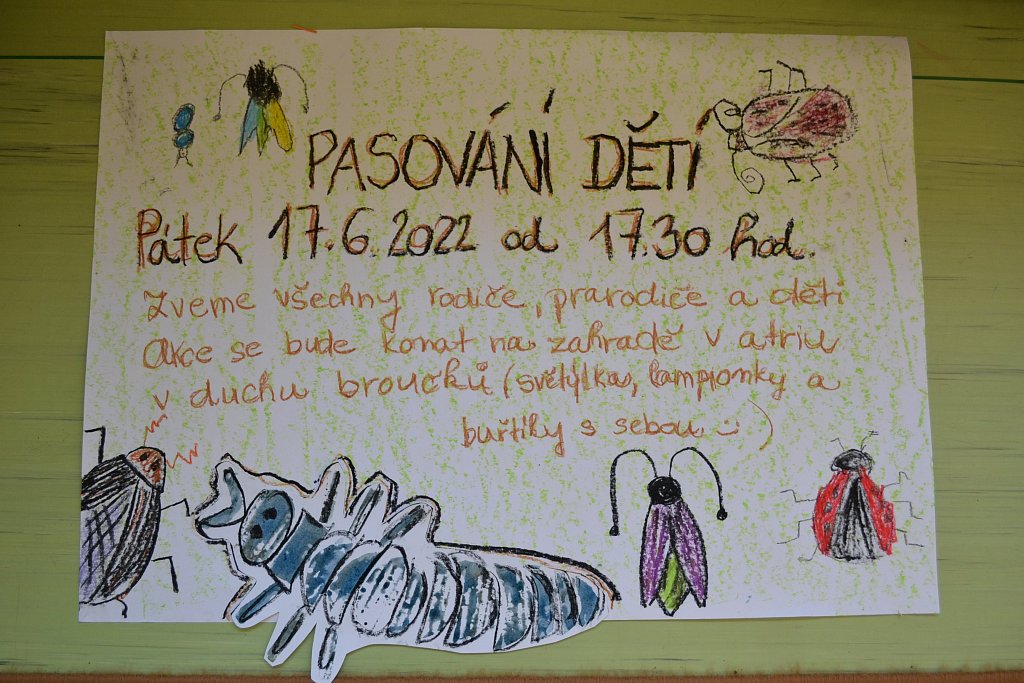 PASOVÁNÍ DĚTÍ
Pátek 17.6.2022 od 17.30 hod.
Zveme všechny rodiče, prarodiče a děti
Akce se bude konat na zahradě v atriu
v duchu broučků (světýlka, lampionky a
buřtíky s sebou :-)